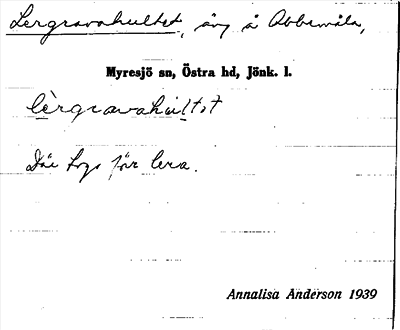 Lergravahultet, äng å Abbemåla,
Myresjö sn, Östra hd, Jönk. l.
lèrgravahul̀tət
Där togs förr lera.
Annalisa Anderson 1939